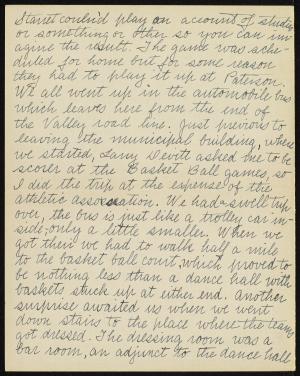 Stanet couldn't play on account of studies
or something or other so you can im-
agine the result. The game was sche-
duled for home but for some reason
they had to play it up at Paterson.
We all went up in the automobile bus
which leaves here from the end of
the Valley road line. Just previous to
leaving the municipal building, where
we started, Larry Devitt asked me to be
scorer at the Basket Ball games, so
I did the trip at the expense of the
athletic association. We had a swell trip
over, the bus is just like a trolley car in-
side, only a little smaller. When we
got there we had to walk half a mile
to the basket ball court, which proved to
be nothing less than a dance hall with
baskets stuck up at either end. Another
surprise awaited us when we went
down stairs to the place where the teams
got dressed. The dressing room was a
bar room, an adjunct to the dance hall